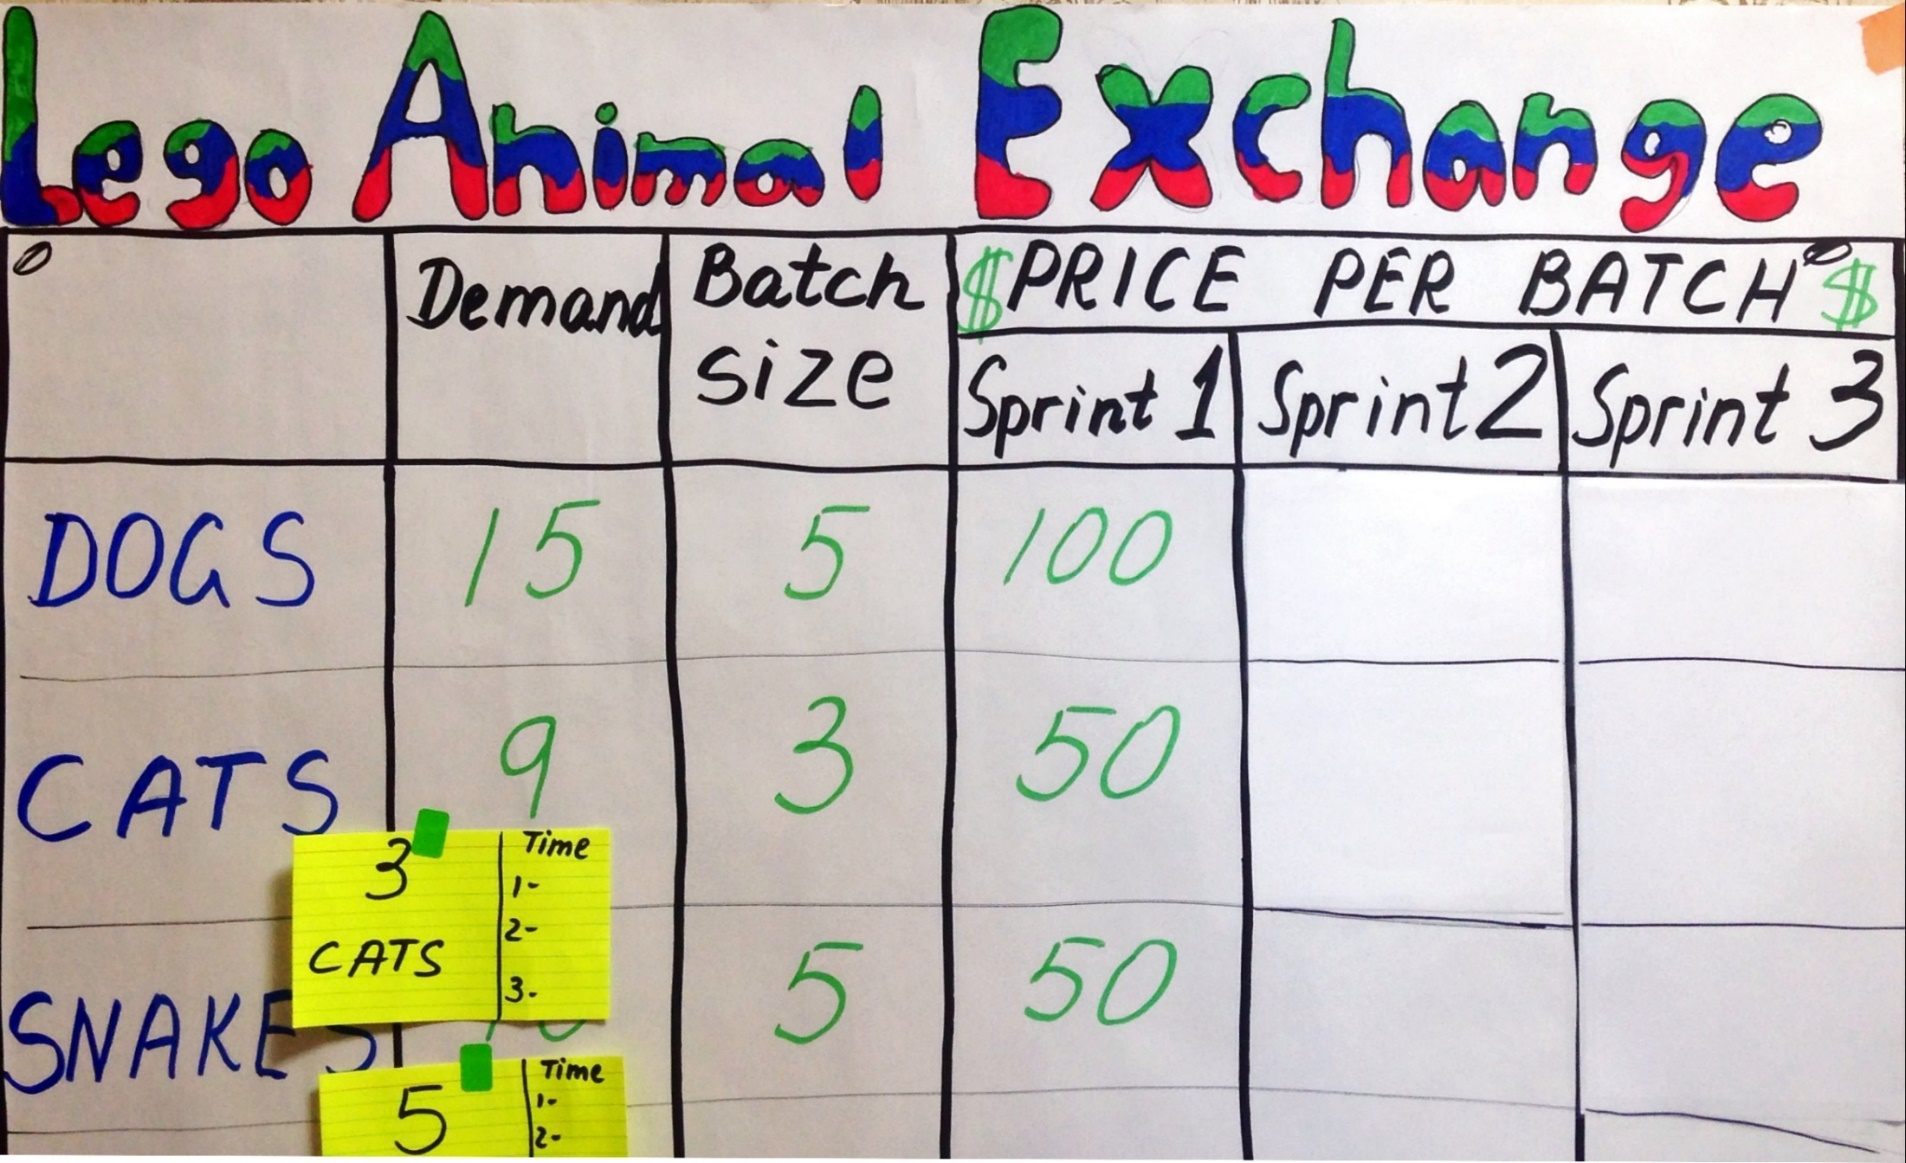 Lego Animal Exchange
Demand
Batch size
$PRICE PER BATCH$
Sprint 1
Sprint 2
Sprint 3
DOGS 15 5 100
CATS 9 3 50
3 CATS
Time
1-
2-
3-
SNAKES 5 50
5
Time
1-
2-